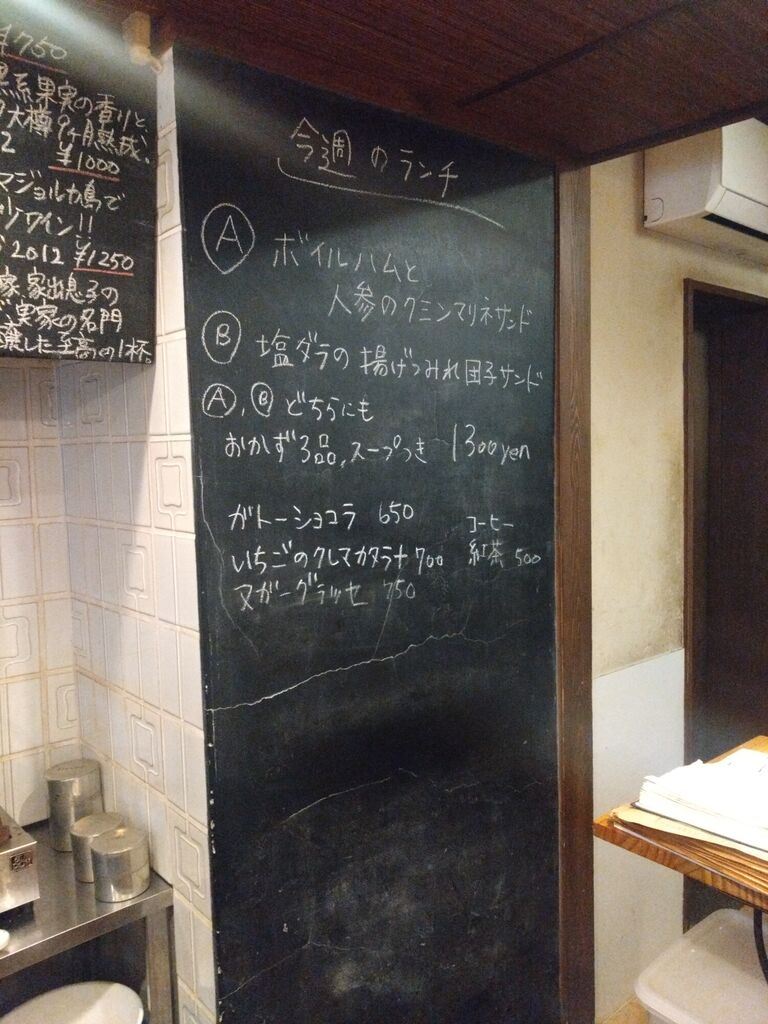 ¥750
黒系果実の香りと、
大樽9ヶ月熟成。
2 ¥1000
マジョルカ島で
ワイン!!
2012 ¥1250
家出息子の
実家の名門
醸した至高の1杯。
今週のランチ
A ボイルハムと
人参のクミンマリネサンド
B 塩ダラの揚げつみれ団子サンド
A, B どちらにも
おかず3品、スープつき 1300yen
ガトーショコラ 650
コーヒー
いちごのクレマカタラナ 700
紅茶 500
ヌガーグラッセ 750